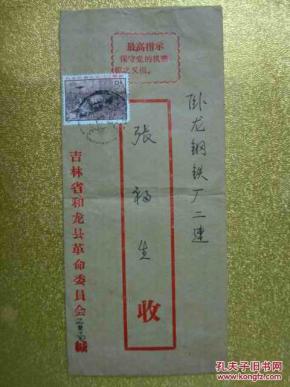 最高指示
保守党的机密
慎之又慎。
卧龙钢铁厂二连
张福生
收
吉林省和龙县革命委员会
孔夫子旧书网